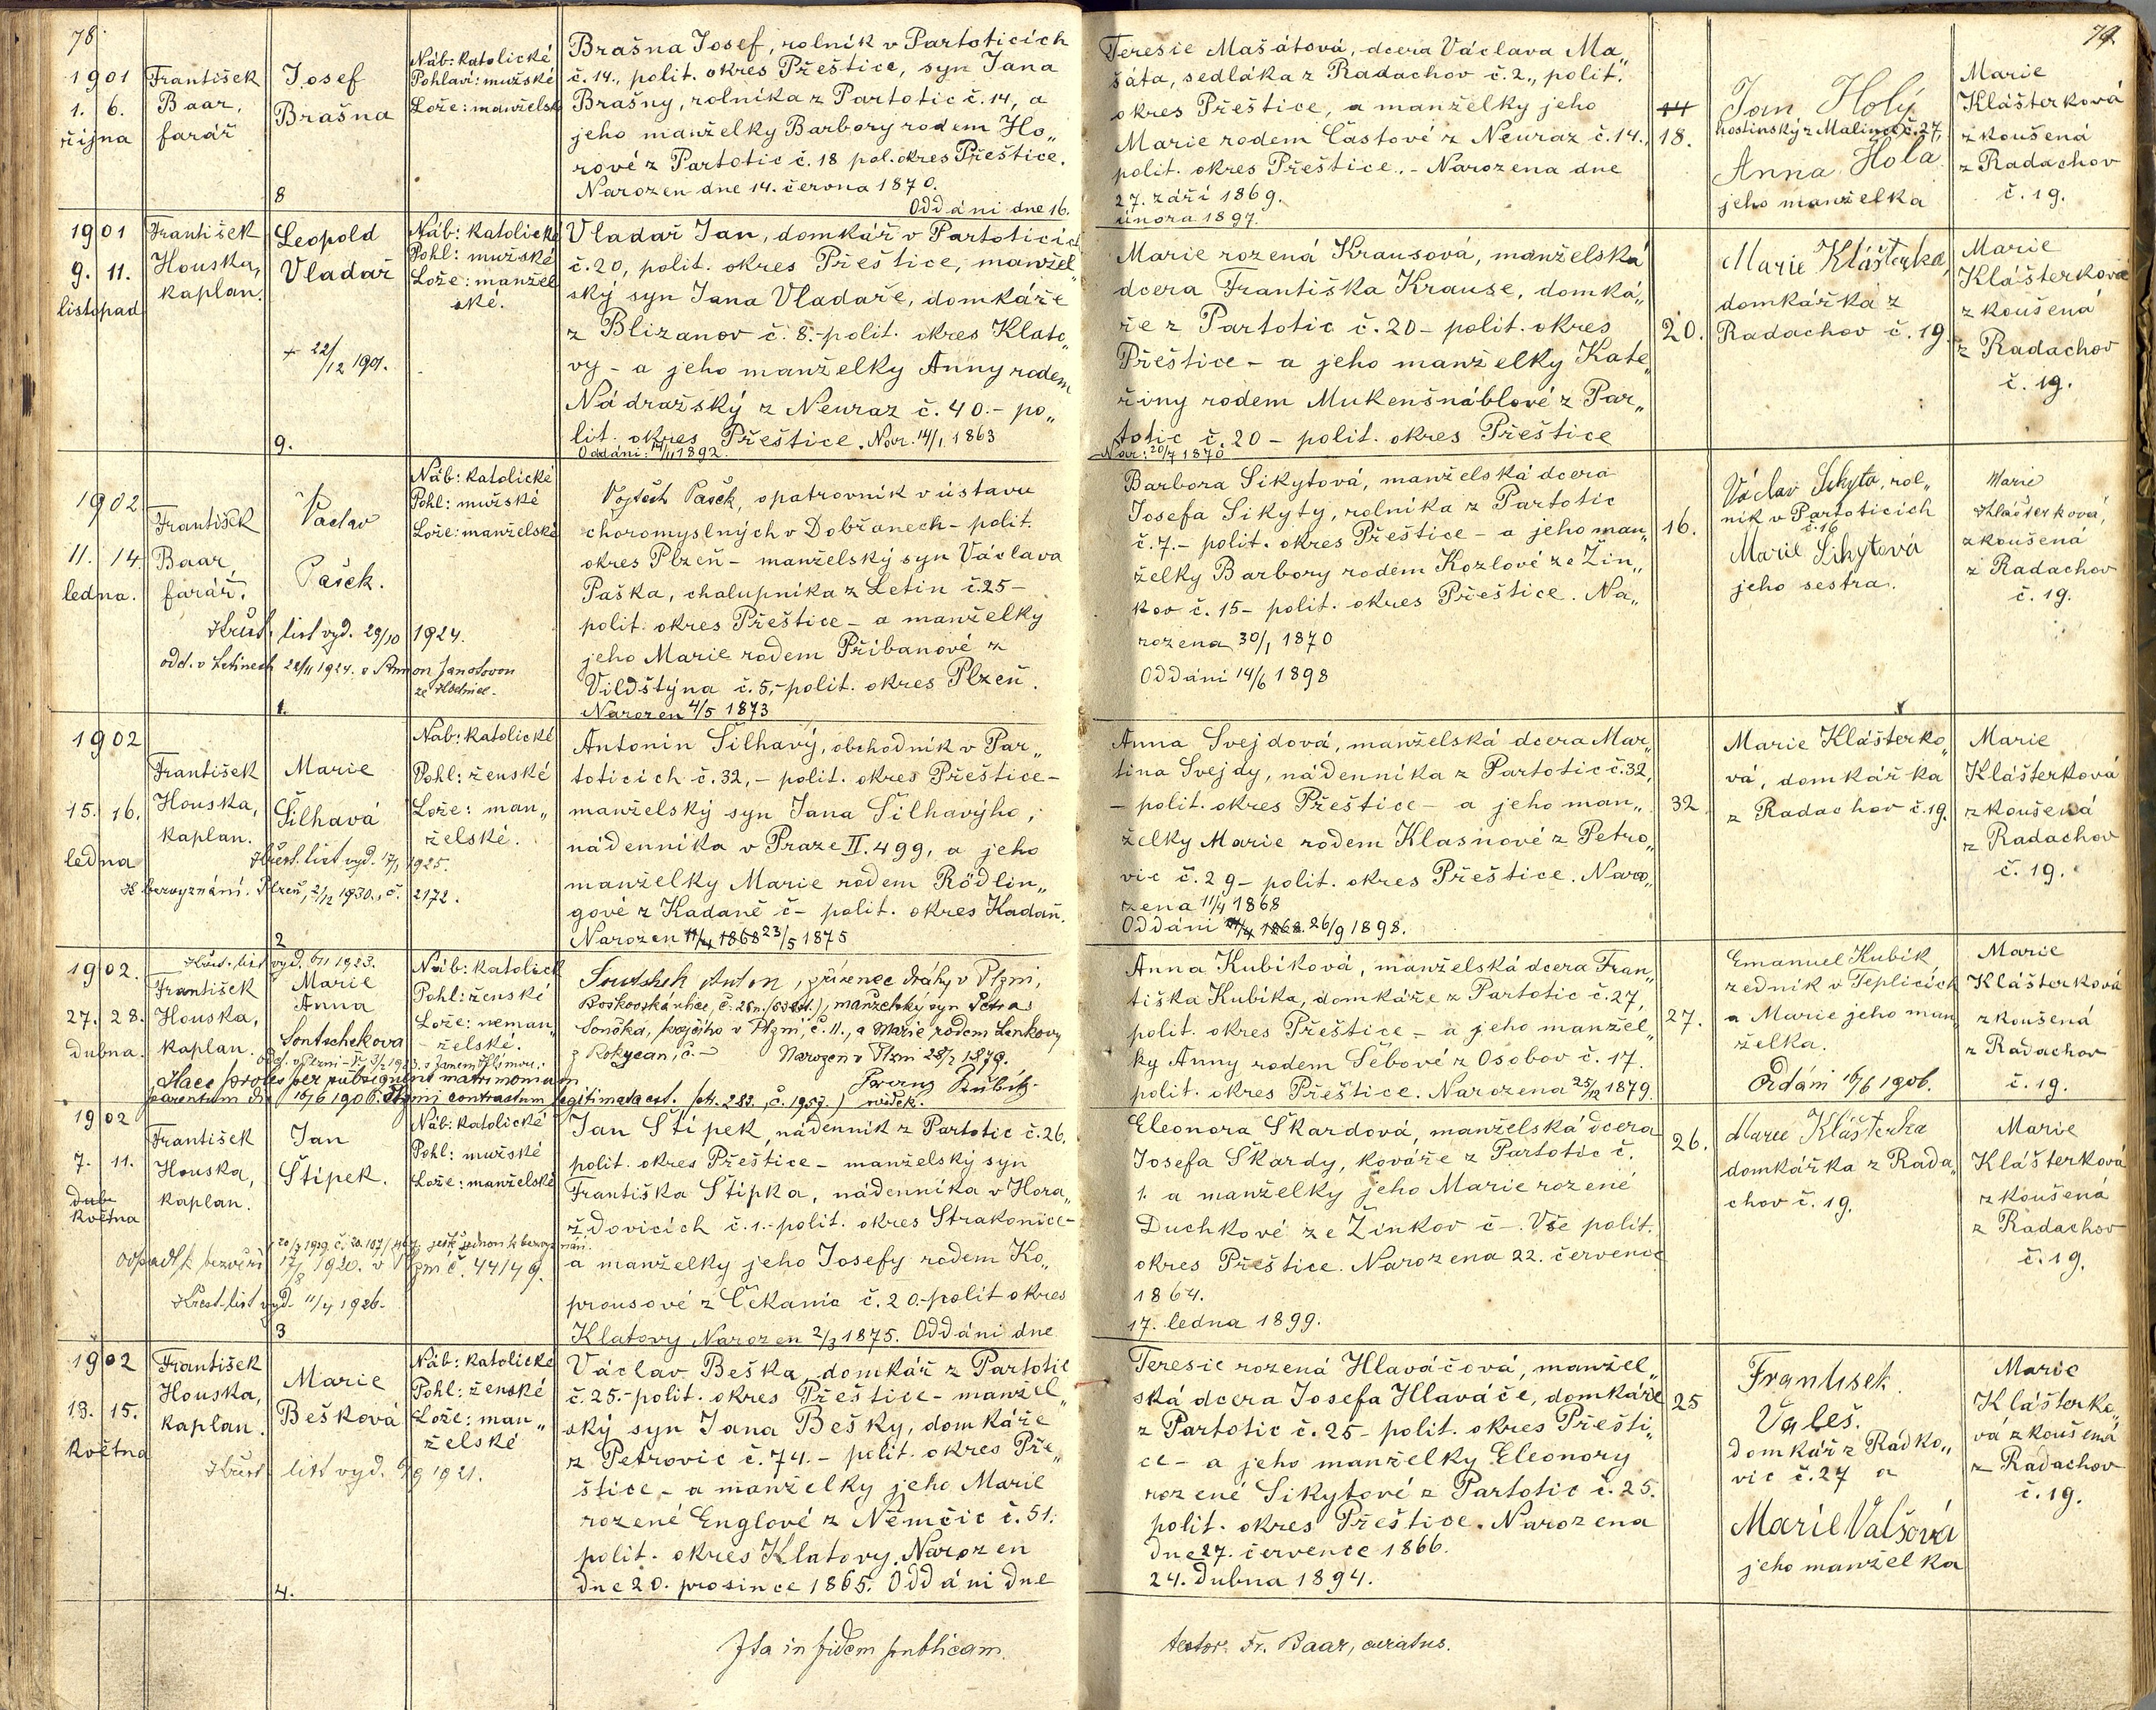 78.
79.
1901
1. 6.
října
František
Baar,
farář
Josef
Brašna
8
Náb: katolické
Pohlaví: mužské
Lože: manželsk
Brašna Josef, rolník v Partoticích
č. 14., polit. okres Přeštice, syn Jana
Brašny, rolníka z Partotic č. 14, a
jeho manželky Barbory rodem Ho„
rové z Partotic č. 18 pol. okres Přeštice.
Narozen dne 14. června 1870.
Oddáni dne 16.
Teresie Mašátová, dcera Václava Ma„
šáta, sedláka z Radachov č. 2., polit.
okres Přeštice, a manželky jeho
Marie rodem Častové z Neuraz č. 14.,
polit. okres Přeštice. - Narozena dne
27. září 1869.
února 1897.
14
18.
Jan Holý
hostinský z Malinec č. 27
Anna Holá
jeho manželka
Marie
Klášterková
zkoušená
z Radachov
č. 19.
1901
9. 11.
listopad
František
Houska,
kaplan.
Leopold
Vladař
+ 22/12 1901.
9.
Náb: katolické
Pohl: mužské
Lože: manžel
ské.
Vladař Jan, domkář v Partoticích
č. 20, polit. okres Přeštice, manžel„
ský syn Jana Vladaře, domkáře
z Blizanov č. 8.- polit. okres Klato„
vy - a jeho manželky Anny rodem
Nádražský z Neuraz č. 40.- po„
lit. okres Přeštice. Nar. 14/1 1863
Oddáni: 14/11 1892.
Marie rozená Krausová, manželská
dcera Františka Krause, domká„
ře z Partotic č. 20 - polit. okres
Přeštice - a jeho manželky Kate„
řiny rodem Mukenšnáblové z Par„
totic č. 20 - polit. okres Přeštice
Nar: 20/7 1870
20.
Marie Klášterka,
domkářka z
Radachov č. 19.
Marie
Klášterková
zkoušená
z Radachov
č. 19.
1902
11. 14.
ledna.
František
Baar,
farář.
Václav
Pašek.
Křest. list vyd. 29/10 1924.
odd. v Letinech 22/11 1924. s Annou Janotovou
1.
Náb: katolické
Pohl: mužské
Lože: manželské
Vojtěch Pašek, opatrovník v ústavu
choromyslných v Dobřanech - polit.
okres Plzeň - manželský syn Václava
Paška, chalupníka z Letin č. 25 -
polit. okres Přeštice - a manželky
jeho Marie rodem Přibanové z
Vildštýna č. 5,- polit. okres Plzeň.
Narozen 4/5 1873
Barbora Sikytová, manželská dcera
Josefa Sikyty, rolníka z Partotic
č. 7.- polit. okres Přeštice - a jeho man„
želky Barbory rodem Kozlové ze Žin„
kov č. 15 - polit. okres Přeštice. Na„
rozena 30/1 1870
Oddáni 14/6 1898
16.
Václav Sikyta, rol„
ník v Partoticích
č. 16
Marie Sikytová
jeho sestra.
Marie
Klášterková,
zkoušená
z Radachov
č. 19.
1902
15. 16.
ledna
František
Houska,
kaplan.
Marie
Šilhavá
Křest. list vyd. 17/1 1925.
K bezvyznání. Plzeň, 2/12 1930., č. 2172.
2
Náb: katolické
Pohl: ženské
Lože: man„
želské.
Antonín Šilhavý, obchodník v Par„
toticích č. 32, - polit. okres Přeštice -
manželský syn Jana Šilhavýho,
nádenníka v Praze II. 499, a jeho
manželky Marie rodem Rödlin„
gové z Kadaně č - polit. okres Kadaň.
Narozen 11/4 1868 23/5 1875
Anna Svejdová, manželská dcera Mar„
tina Svejdy, nádenníka z Partotic č. 32,
- polit. okres Přeštice - a jeho man„
želky Marie rodem Klasnové z Petro„
vic č. 29 - polit. okres Přeštice. Naro„
zena 11/4 1868
Oddáni 11/4 1868. 26/9 1898.
32
Marie Klášterko„
vá, domkářka
z Radachov č. 19.
Marie
Klášterková
zkoušená
z Radachov
č. 19.
1902.
27. 28.
dubna.
Křest. list vyd. 1923.
František
Houska,
kaplan.
Marie
Anna
Sontschekova
Náb: katolick
Pohl: ženské
Lože: neman„
želské.
Haec proles per subsequens matrimonium
parentum die 16/6 1906. Plzni contractum legitimata est. (str. 282, č. 1957.)
Sontschek Anton, zřízenec dráhy v Plzni,
manželský syn Petra
Sončka, v Plzni, č. 11., a Marie, rodem Lenkovy
z Rokycan, č. - Narozen v Plzni 28/2 1879.
Franz Kubík
svědek.
Anna Kubíková, manželská dcera Fran„
tiška Kubíka, domkáře z Partotic č. 27,
polit. okres Přeštice - a jeho manžel„
ky Anny rodem Šebové z Osobov č. 17.
polit. okres Přeštice. Narozena 25/12 1879.
27.
Emanuel Kubík
zedník v Teplicích
a Marie jeho man„
želka.
Oddáni 16/6 1906.
Marie
Klášterková
zkoušená
z Radachov
č. 19.
1902
7. 11.
dub
května
František
Houska,
kaplan.
Jan
Štípek.
Křest. list vyd. 11/4 1926.
3
Náb: katolické
Pohl: mužské
Lože: manželské
Jan Štípek, nádenník z Partotic č. 26,
polit. okres Přeštice - manželský syn
Františka Štípka, nádenníka v Hora„
žďovicích č. 1.- polit. okres Strakonice -
a manželky jeho Josefy rodem Ko„
prousové z Čekanic č. 20.- polit okres
Klatovy. Narozen 2/3 1875. Oddáni dne
Eleonora Škardová, manželská dcera
Josefa Škardy, kováře z Partotic č.
1. a manželky jeho Marie rozené
Duchkové ze Žinkov č -. Vše polit.
okres Přeštice. Narozena 22. července
1864.
17. ledna 1899.
26.
Marie Klášterka
domkářka z Rada„
chov č. 19.
Marie
Klášterková
zkoušená
z Radachov
č. 19.
1902
13. 15.
května
František
Houska,
kaplan.
Marie
Bešková
Křest. list vyd. 1921.
4.
Náb: katolické
Pohl: ženské
Lože: man„
želské
Václav Beška, domkář z Partotic
č. 25.- polit. okres Přeštice - manžel„
ský syn Jana Bešky, domkáře
z Petrovic č. 74. - polit. okres Pře„
štice - a manželky jeho Marie
rozené Englové z Němčic č. 51.
polit. okres Klatovy. Narozen
dne 20. prosince 1865. Oddáni dne
Teresie rozená Hlaváčová, manžel„
ská dcera Josefa Hlaváče, domkáře
z Partotic č. 25 - polit. okres Přešti„
ce - a jeho manželky Eleonory
rozené Sikytové z Partotic č. 25.
polit. okres Přeštice. Narozena
dne 27. července 1866.
24. dubna 1894.
25
František
Valeš.
domkář z Radko„
vic č. 27 a
Marie Valšová
jeho manželka
Marie
Klášterko„
vá zkoušená
z Radachov
č. 19.
Ita in fidem publicam.
testor. Fr. Baar, curatus.